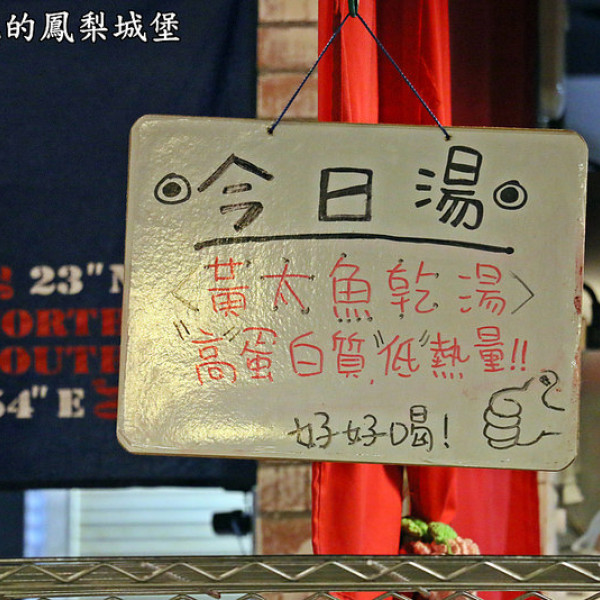 的鳳梨城堡
今日湯
<黃太魚乾湯>
"高"蛋白質,"低"熱量!!
好好喝!
23" N
54" E